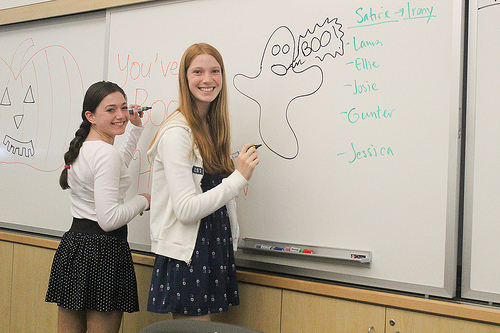 You've
Boo
BOO!
Satire → Irony
- Lauren
- Ellie
- Josie
- Gunter
- Jessica